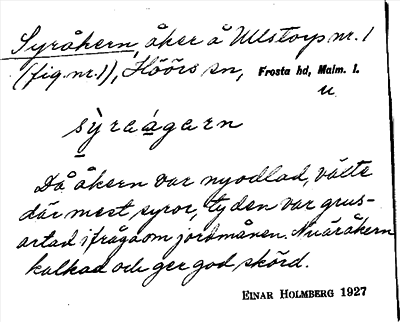 Syråkern, åker å Ullstorp nr. 1
(fig. nr. 1), Höörs sn, Frosta hd, Malm. l.
u
sỳraágarn
Då åkern var nyodlad, växte
där mest syror, ty den var grus-
artad ifråga om jordmånen. Nu är åkern
kalkad och ger god skörd.
EINAR HOLMBERG 1927